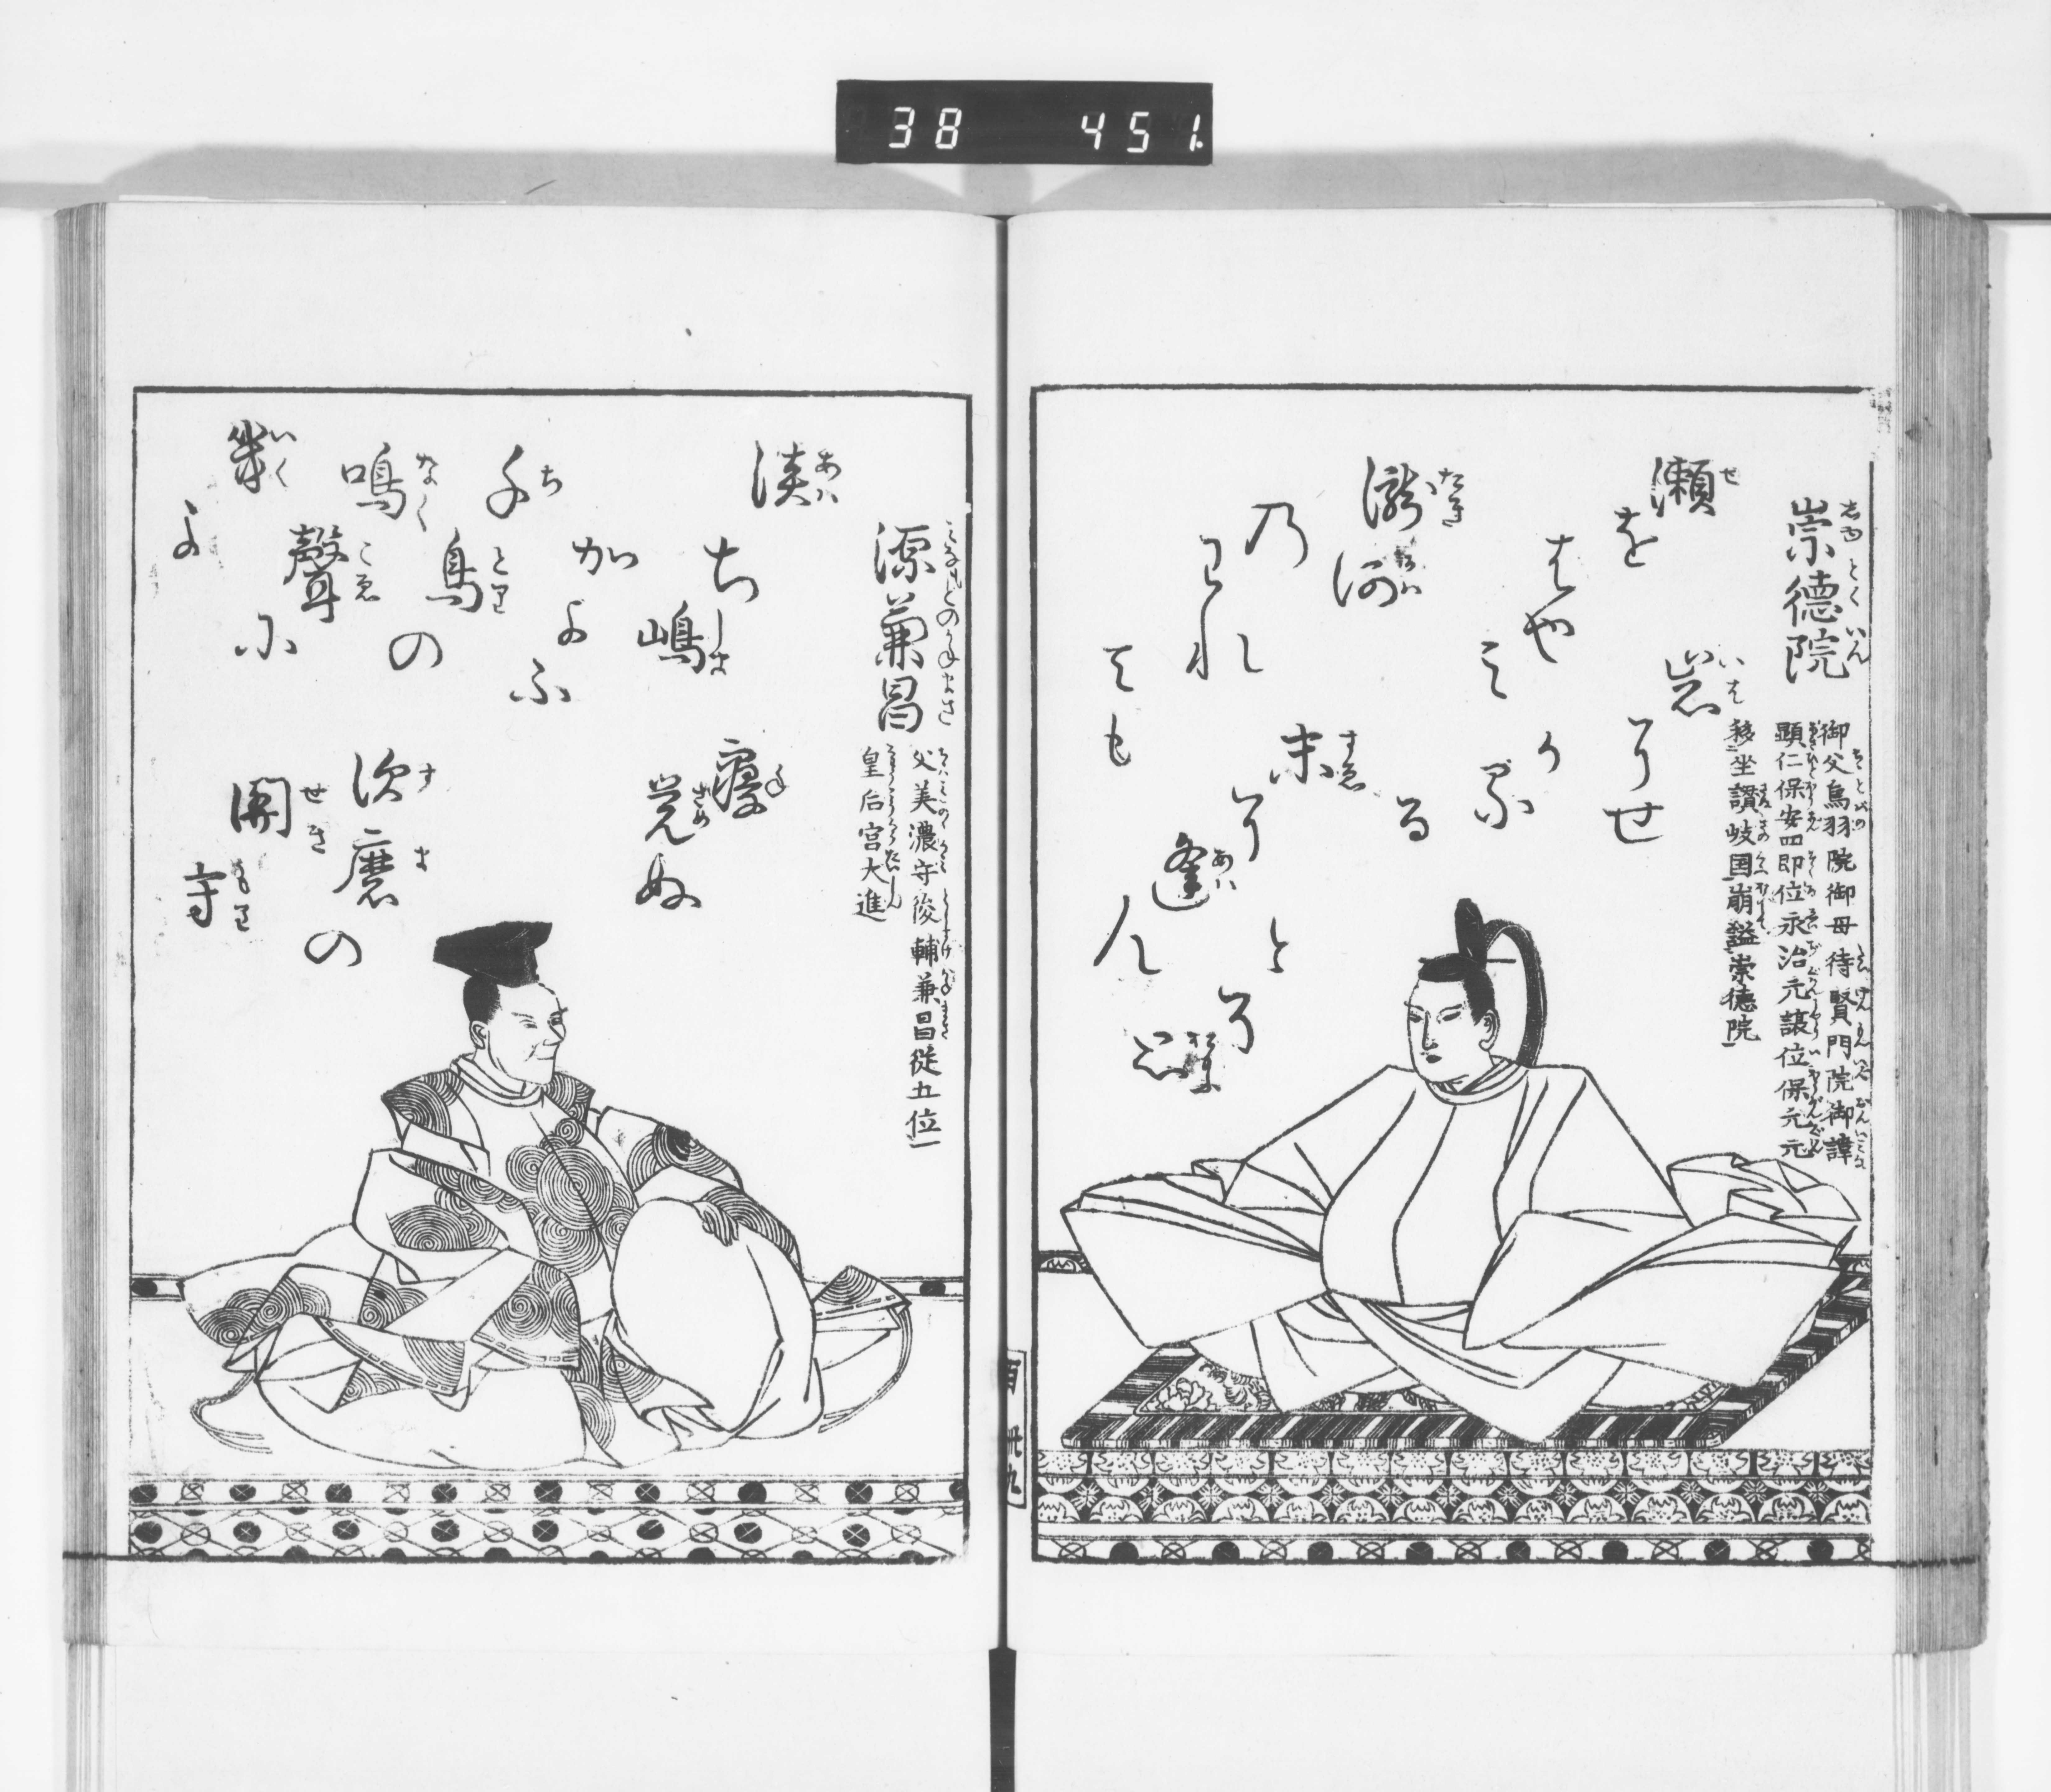 38 451
崇徳院
御父鳥羽院御母待賢門院御諱
顕仁保安四即位永治元譲位保元元
移坐讃岐国崩謚崇徳院
瀬を
はやみ
岩にせ
かるる
瀧河
乃
われ
ても
末に
逢ん
とそ
源兼昌
父美濃守俊輔兼昌従五位
皇后宮大進
淡ち嶋
かよふ
千鳥の
鳴聲に
幾よ
寝覚ぬ
次磨の
関守
百 卅九